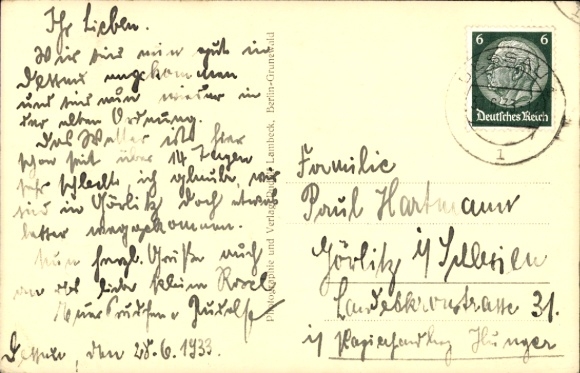 Ihr Lieben.
Wir sind nun gut in
Dessau angekommen
und sind nun wieder in
der alten Ordnung.
Das Wetter ist hier
schon seit über 14 Tagen
sehr schlecht, ich glaube, wir
sind in Görlitz doch etwas
besser weggekommen.
Nun herzl. Grüße auch
an das liebe kleine Rosel
Rudolf
Dessau, den 28.6.1933.
Photographie und Verlag Lambeck, Berlin-Grunewald
6 6
Deutsches Reich
1
Familie
Paul Hartmann
Görlitz i/Schlesien
Landeskronstrasse 31.
i/ Papierhandlung Hunger